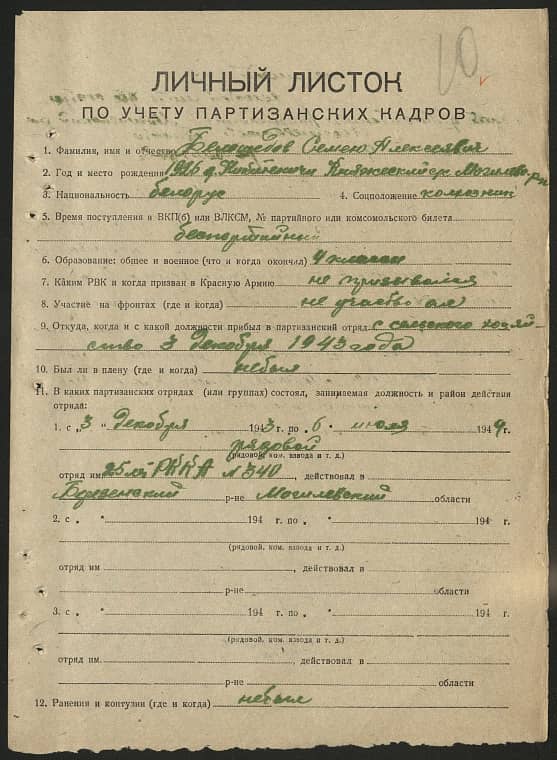 10
ЛИЧНЫЙ ЛИСТОК
ПО УЧЕТУ ПАРТИЗАНСКИХ КАДРОВ
1. Фамилия, имя и отчество Семен Алексеевич
2. Год и место рождения 1926 д.
3. Национальность белорус 4. Соцположение колхозник
5. Время поступления в ВКП(б) или ВЛКСМ, № партийного или комсомольского билета
беспортийный
6. Образование: общее и военное (что и когда окончил) 4 класса
7. Каким РВК и когда призван в Красную Армию не призывался
8. Участие на фронтах (где и когда) не участвовал
9. Откуда, когда и с какой должности прибыл в партизанский отряд с сельского хозяй-
ство 3 Декабря 1943 года
10. Был ли в плену (где и когда) небыл
11. В каких партизанских отрядах (или группах) состоял, занимаемая должность и район действия
отряда:
1. с „3" Декабря 1943 г. по „6" июля 1944 г.
рядовой
(рядовой, ком. взвода и т. д.)
отряд им. 25 лет РККА № 340, действовал в
р-не Могилевский области
2. с „ " 194 г. по „ " 194 г.
(рядовой, ком. взвода и т. д.)
отряд им., действовал в
р-не области
3. с „ " 194 г. по „ " 194 г.
(рядовой, ком. взвода и т. д.)
отряд им., действовал в
р-не области
12. Ранения и контузии (где и когда) небыл